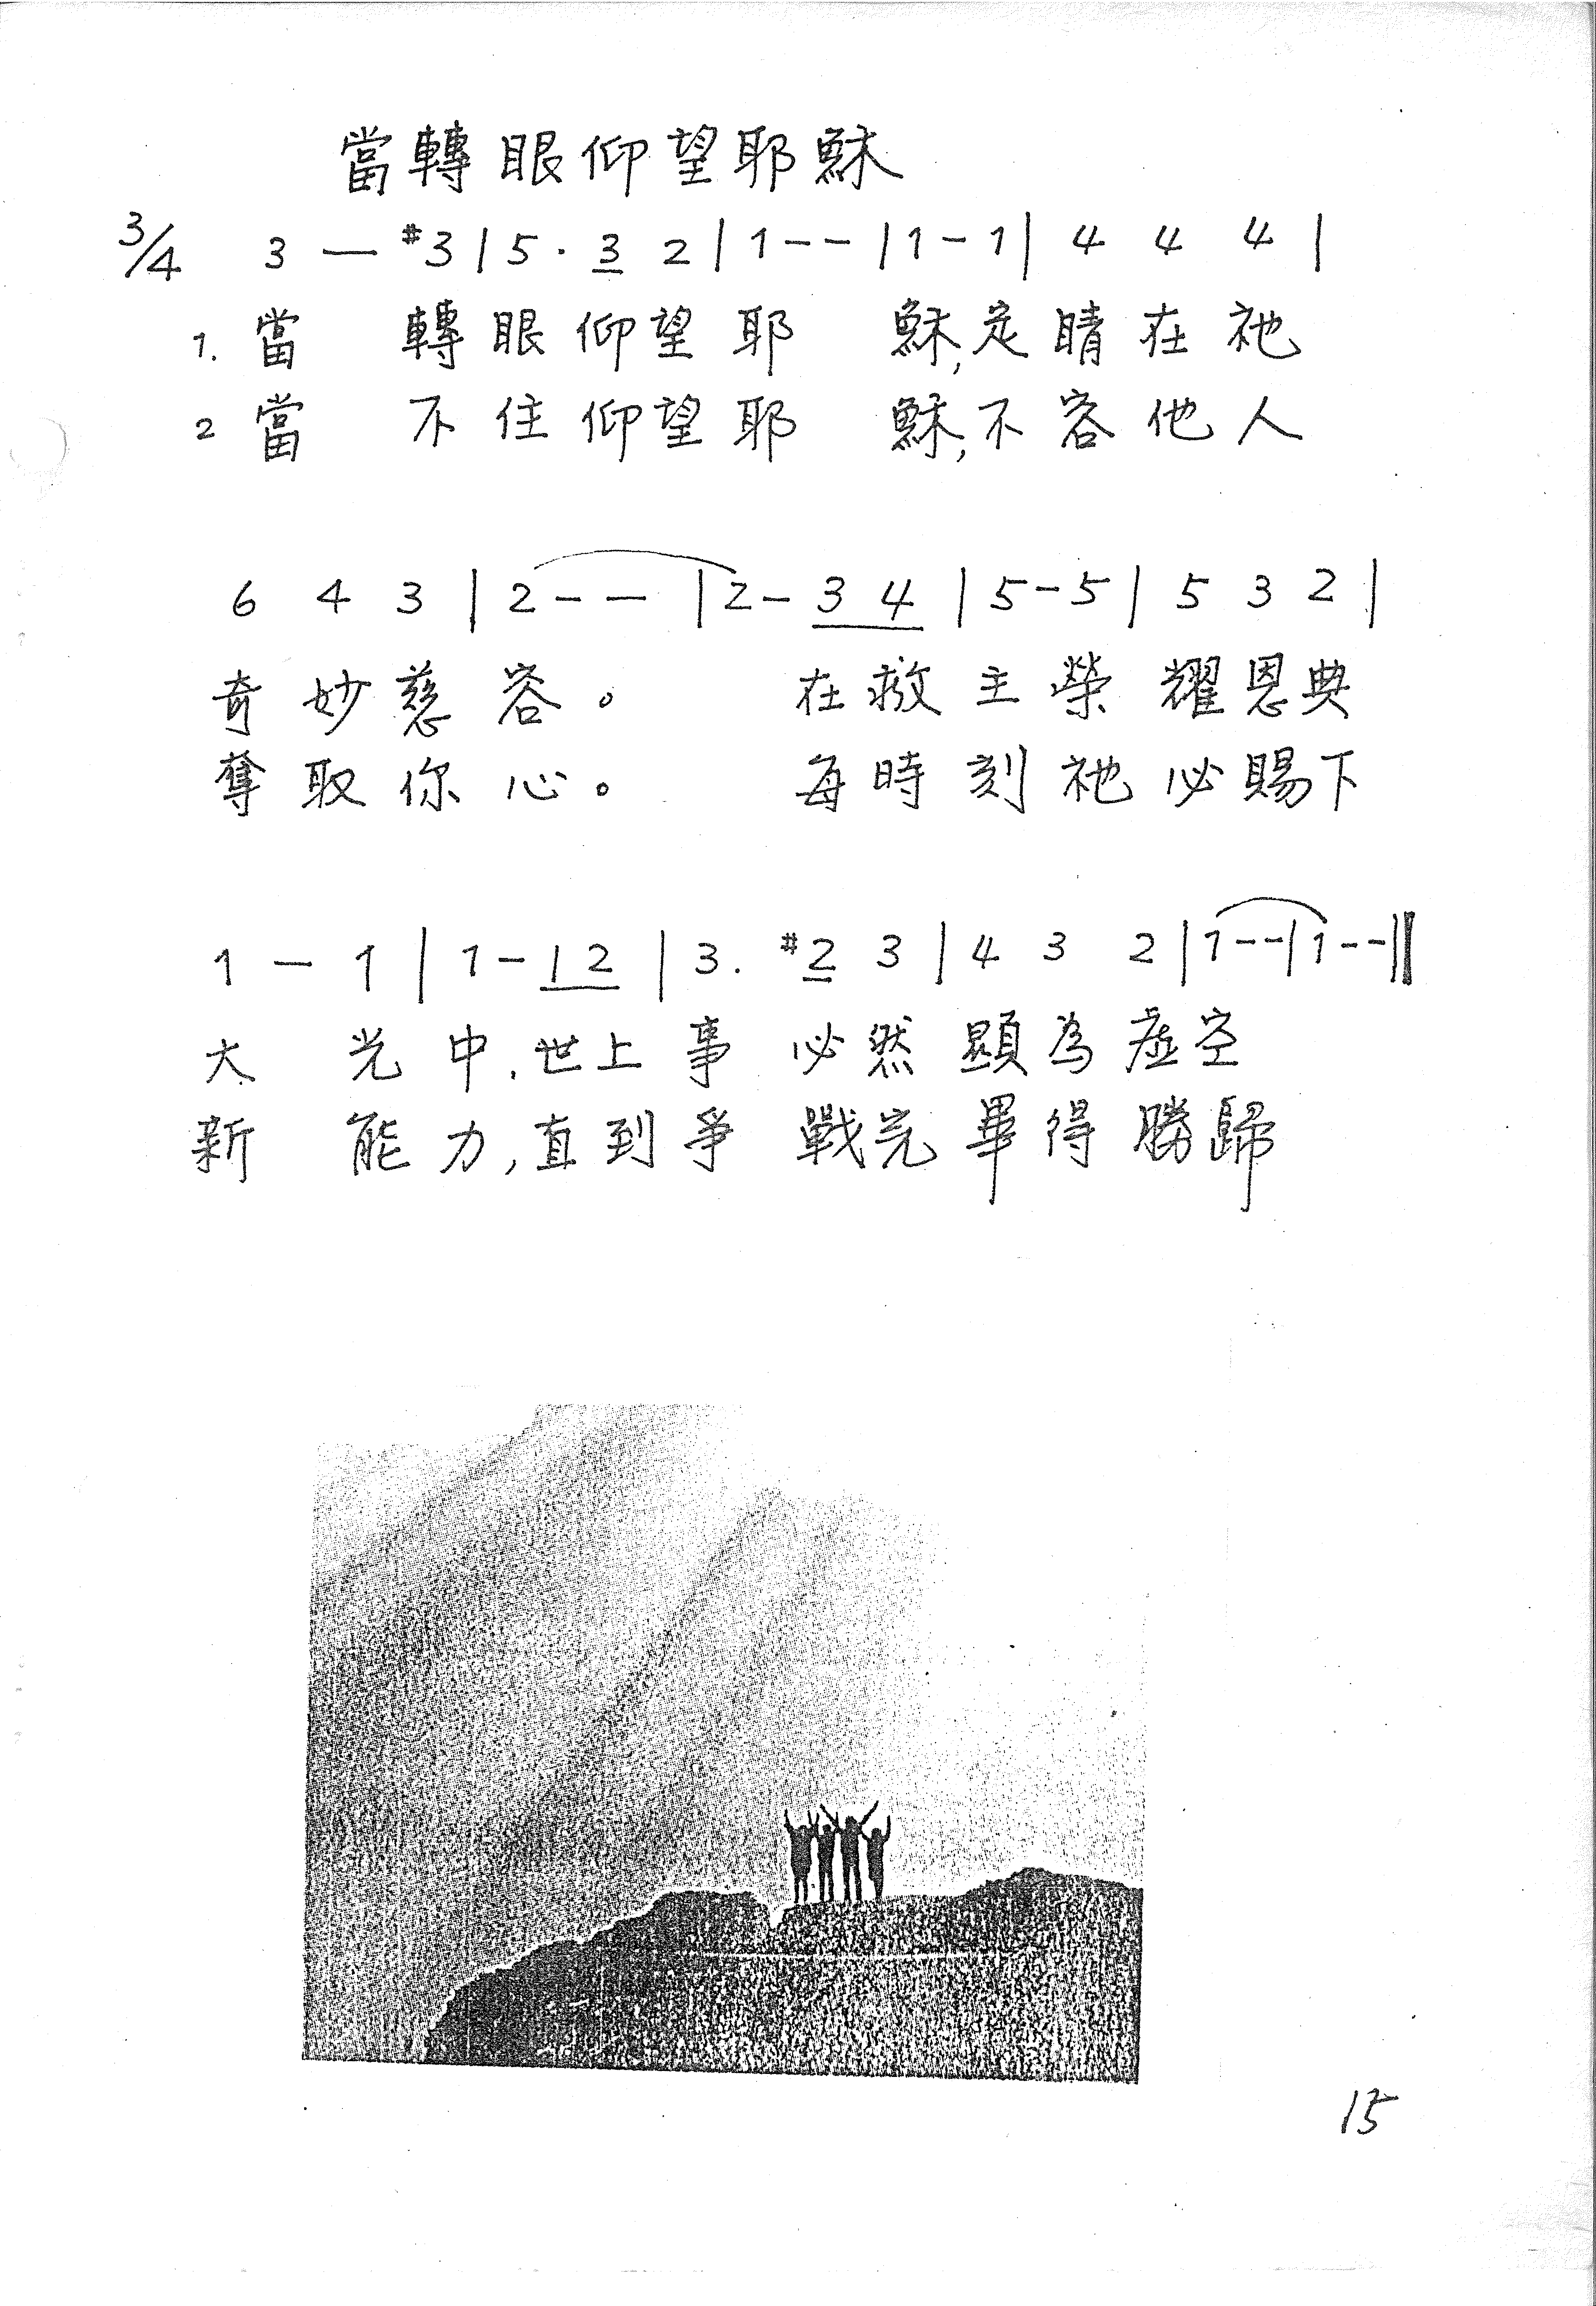 當轉眼仰望耶穌
3/4 3 — #3 | 5 · 3 2 | 1 - - | 1 - 1 | 4 4 4 |
1. 當 轉眼仰望耶 穌,定睛在祂
2 當 不住仰望耶 穌,不容他人
6 4 3 | 2 - — | 2 - 3 4 | 5 - 5 | 5 3 2 |
奇妙慈容。 在救主榮耀恩典
奪取你心。 每時刻祂必賜下
1 — 1 | 1 - 1 2 | 3. #2 3 | 4 3 2 | 1 - - | 1 - - ||
大 光中,世上事必然顯為虛空
新 能力,直到爭戰完畢得勝歸
15